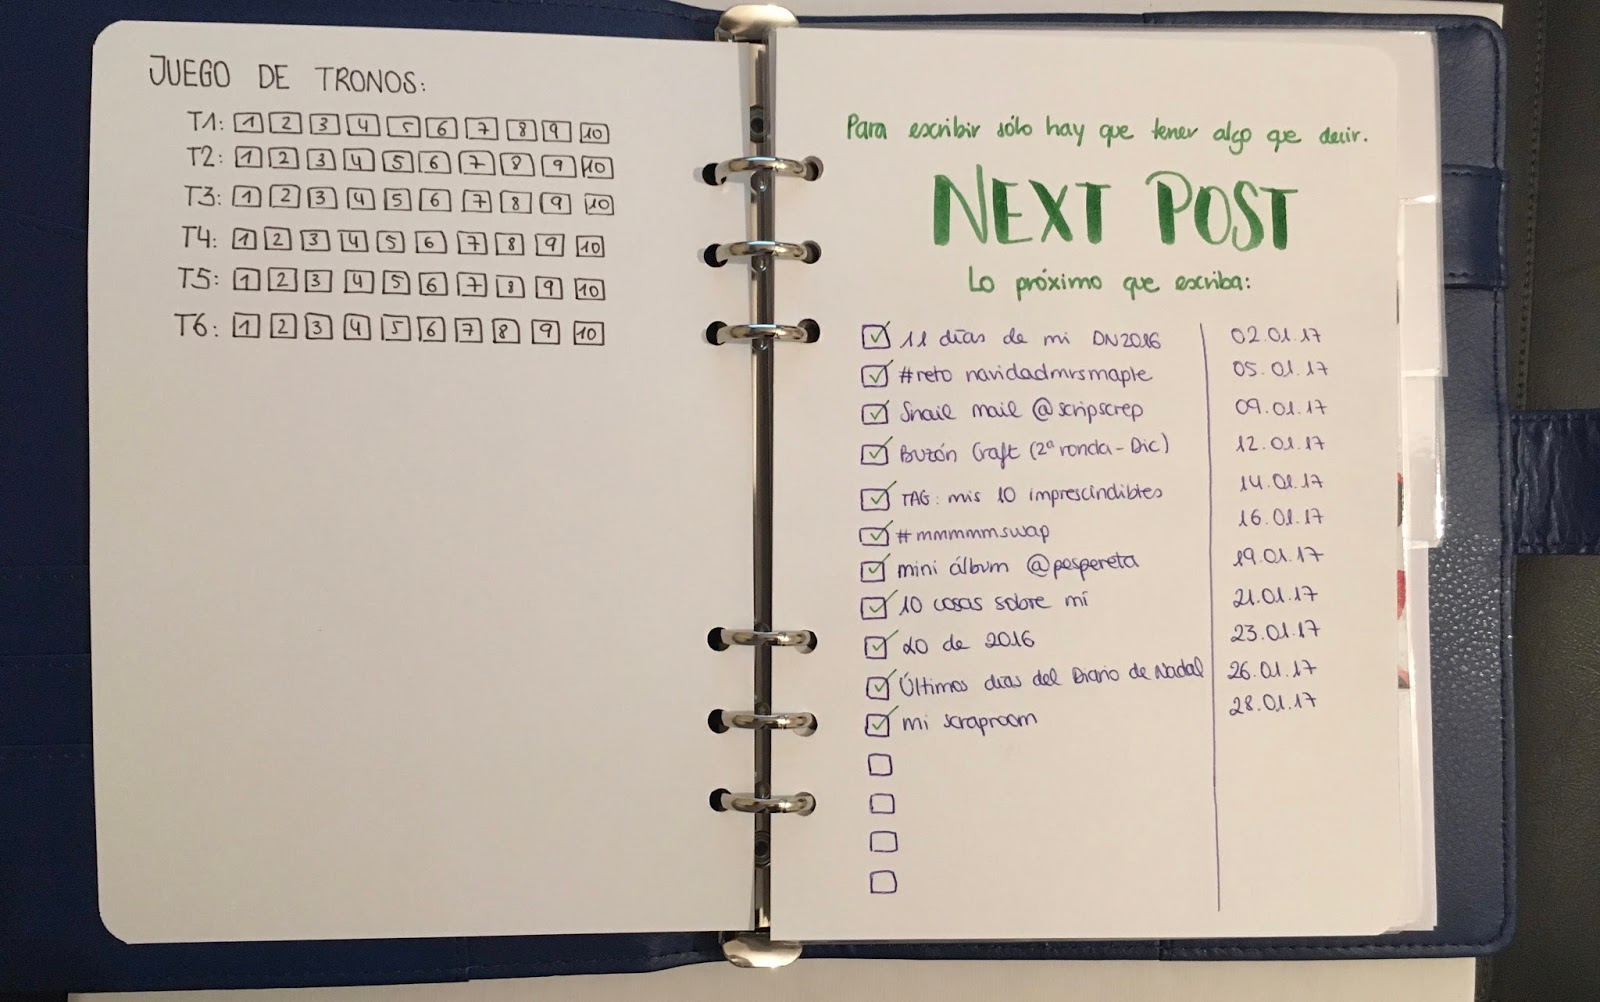 JUEGO DE TRONOS:
T1: 1 2 3 4 5 6 7 8 9 10
T2: 1 2 3 4 5 6 7 8 9 10
T3: 1 2 3 4 5 6 7 8 9 10
T4: 1 2 3 4 5 6 7 8 9 10
T5: 1 2 3 4 5 6 7 8 9 10
T6: 1 2 3 4 5 6 7 8 9 10
Para escribir sólo hay que tener algo que decir.
NEXT POST
Lo próximo que escriba:
11 días de mi DN2016 02.01.17
#reto navidadmrsmaple 05.01.17
Snail mail @scripscrep 09.01.17
Buzón Craft (2ª ronda - Dic) 12.01.17
TAG: mis 10 imprescindibles 14.01.17
#mmmmmswap 16.01.17
mini álbum @pespereta 19.01.17
10 cosas sobre mí 21.01.17
LO de 2016 23.01.17
Últimos días del Diario de Nadal 26.01.17
mi scraproom 28.01.17